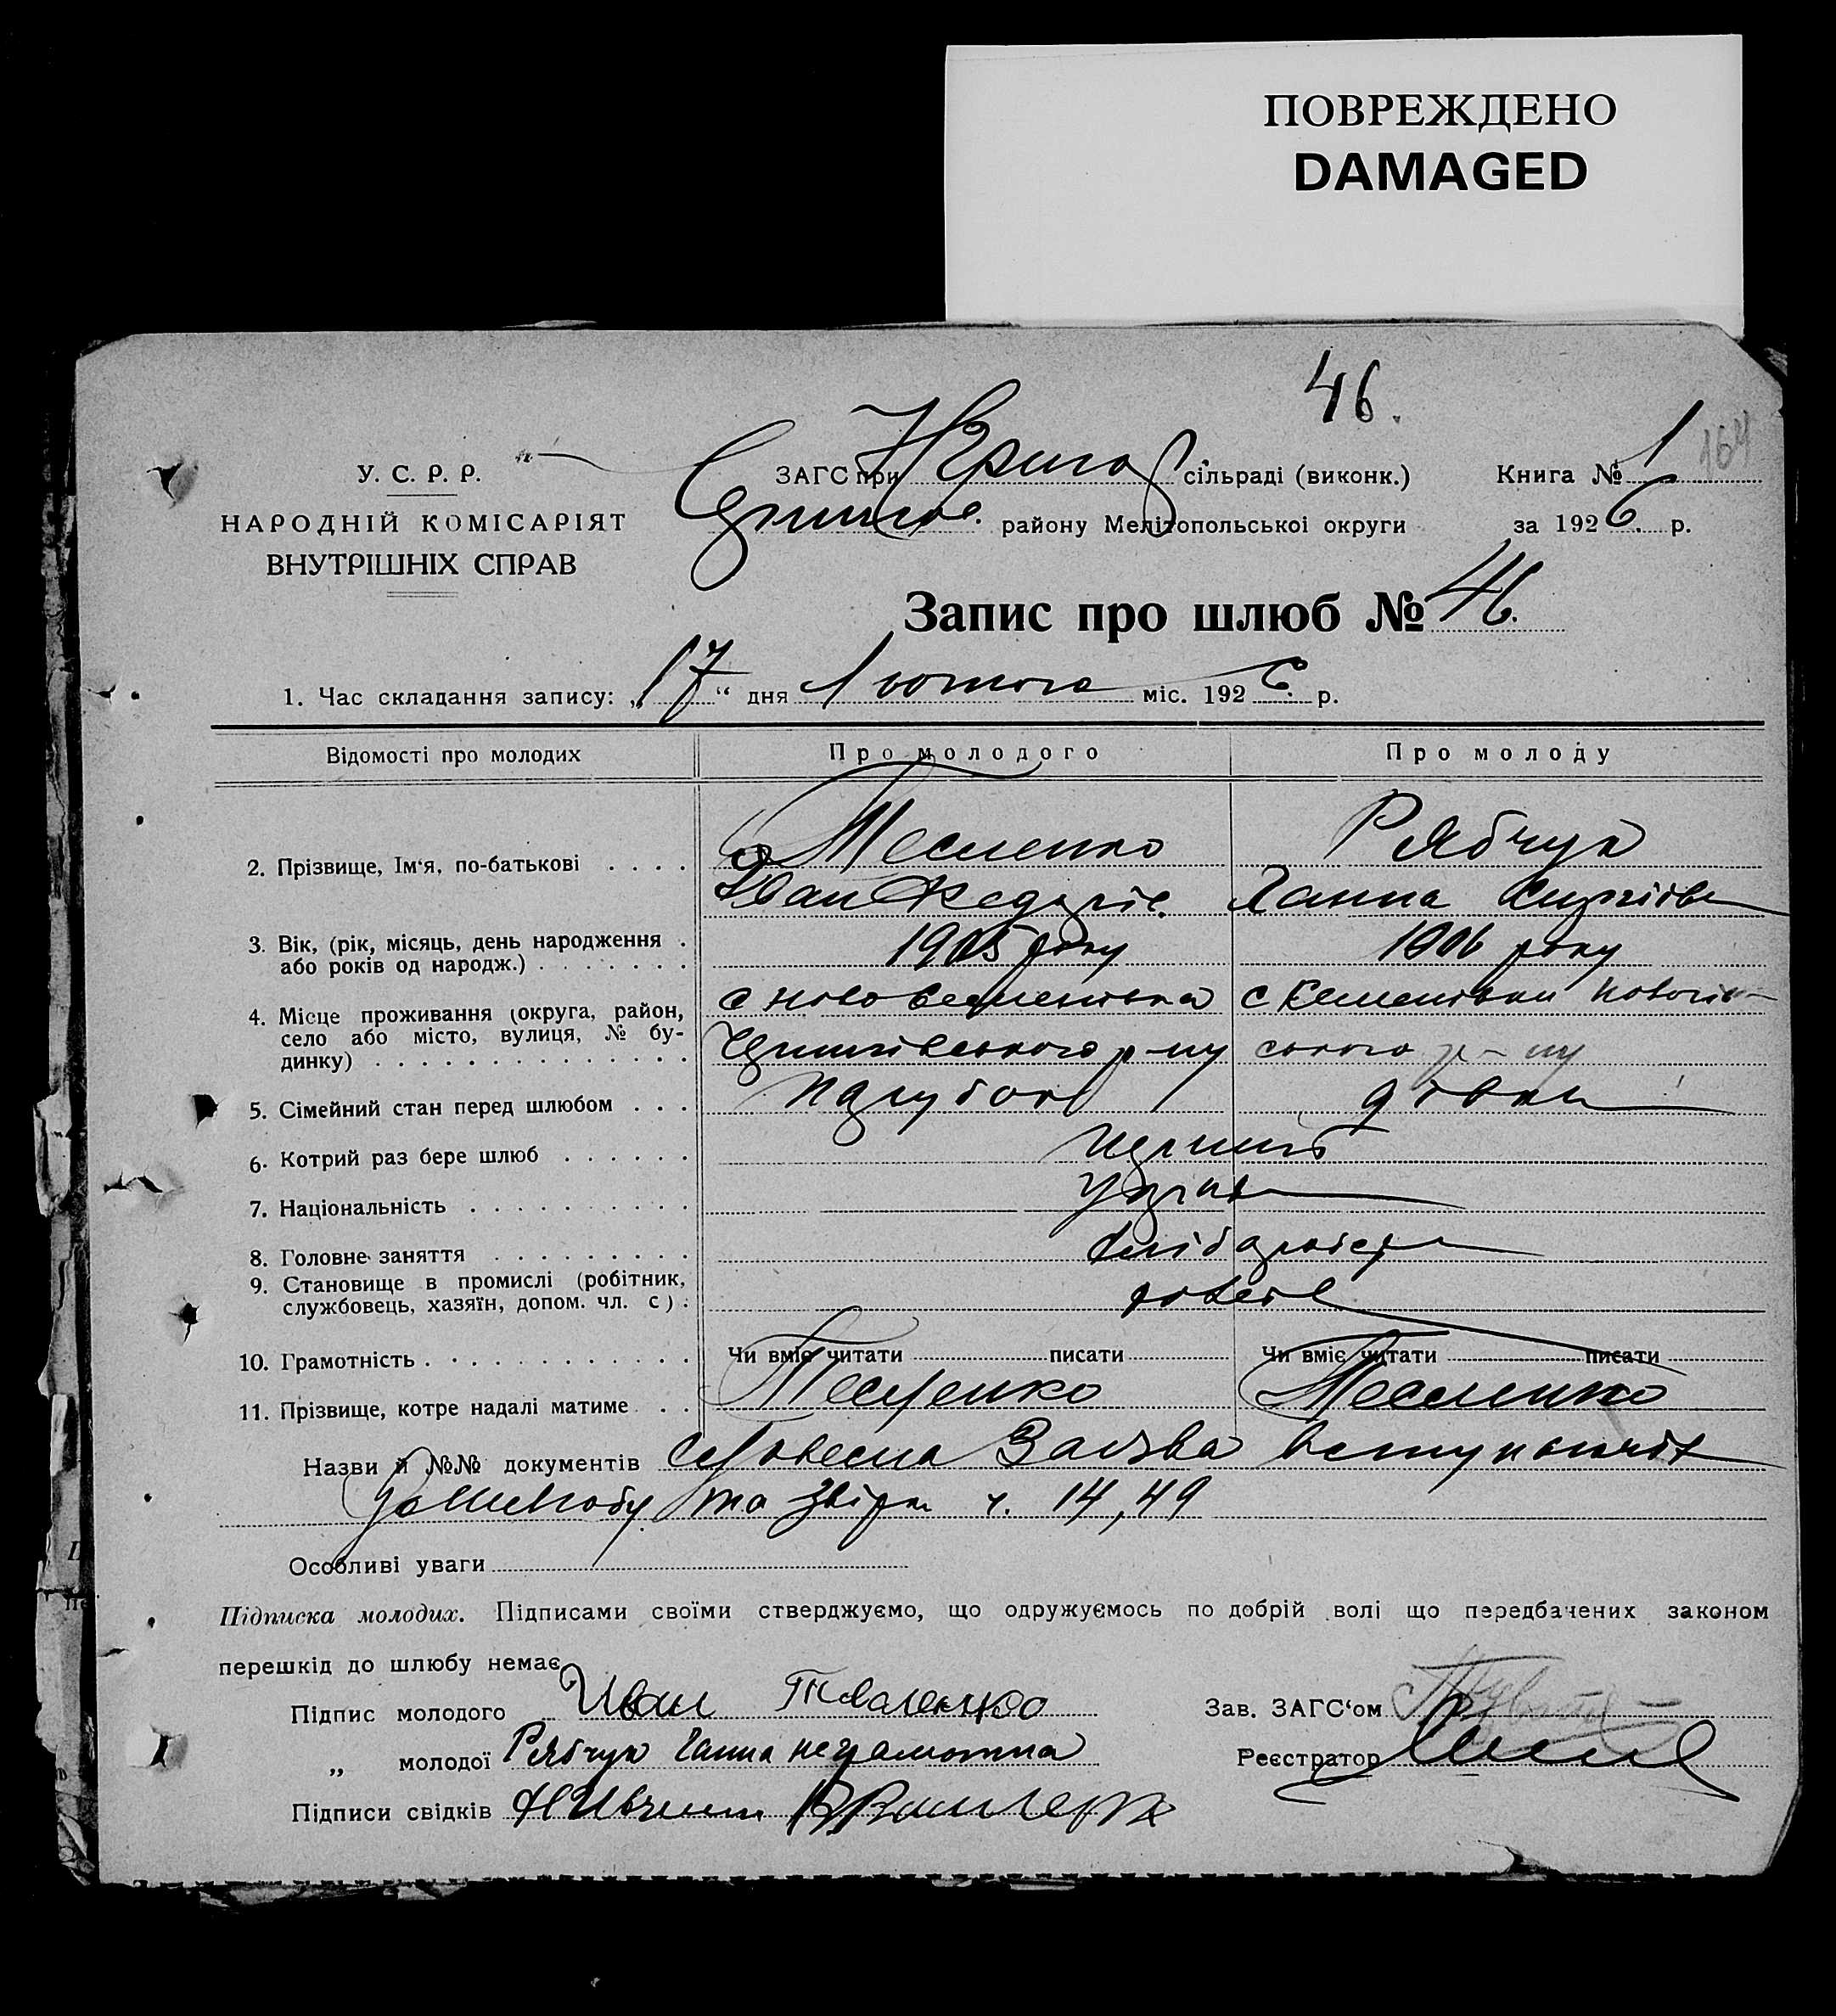 ПОВРЕЖДЕНО
DAMAGED
46.
164
У. С. Р. Р.
НАРОДНІЙ КОМІСАРІЯТ
ВНУТРІШНІХ СПРАВ
ЗАГС при сільраді (виконк.)
району Мелітопольської округи
Книга № 1
за 1926. р.
Запис про шлюб № 46.
1. Час складання запису: „17“ дня Лютого міс. 1926. р.
Відомості про молодих Про молодого Про молоду
2. Прізвище, Ім‘я, по-батькові . . . . Тесленко Рябчук
Іван Федоров. Ганна
3. Вік, (рік, місяць, день народження .
або років од народж.) . . . . . . . 1905 року 1906 року
4. Місце проживання (округа, район,
село або місто, вулиця, № бу-
динку) . . . . . . . . . . . . . р-ну р-ну
5. Сімейний стан перед шлюбом . . . парубок дівка
6. Котрий раз бере шлюб . . . . . . перший
7. Національність . . . . . . . . . .
8. Головне заняття . . . . . . . . .
9. Становище в промислі (робітник,
службовець, хазяїн, допом. чл. с) .
10. Грамотність . . . . . . . . . . . . Чи вміє читати писати Чи вміє читати писати
11. Прізвище, котре надалі матиме . . Тесленко Тесленко
Назви й №№ документів Словесна Заява вступаючих
до шлюбу та звірки ч. 14,49
Особливі уваги
Підписка молодих. Підписами своїми стверджуємо, що одружуємось по добрій волі що передбачених законом
перешкід до шлюбу немає
Підпис молодого Иван Тесленко Зав. ЗАГС‘ом
„ молодої Рябчук Ганна неграмотна Реєстратор
Підписи свідків